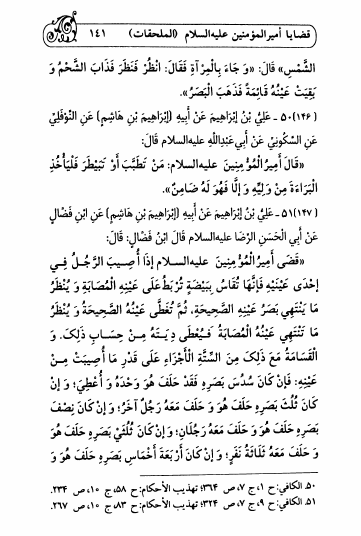 قضایا أمیرالمؤمنین علیه‌السلام (الملحقات) ۱۴۱
الشَّمْسِ» قَالَ: «وَ جَاءَ بِالْمِرْآةِ فَقَالَ: انْظُرْ فَنَظَرَ فَذَابَ الشَّحْمُ وَ
بَقِيَتْ عَيْنُهُ قَائِمَةً فَذَهَبَ الْبَصَرُ».
(۱۴۶) ۵۰ ـ عَلِيُّ بْنُ إِبْرَاهِيمَ عَنْ أَبِيهِ (إِبْرَاهِيمَ بْنِ هَاشِمٍ) عَنِ النَّوْفَلِيِّ
عَنِ السَّكُونِيِّ عَنْ أَبِي‌عَبْدِاللَّهِ علیه‌السلام قَالَ:
«قَالَ أَمِيرُ الْمُؤْمِنِينَ علیه‌السلام: مَنْ تَطَبَّبَ أَوْ تَبَيْطَرَ فَلْيَأْخُذِ
الْبَرَاءَةَ مِنْ وَلِيِّهِ وَ إِلَّا فَهُوَ لَهُ ضَامِنٌ».
(۱۴۷) ۵۱ ـ عَلِيُّ بْنُ إِبْرَاهِيمَ عَنْ أَبِيهِ (إِبْرَاهِيمَ بْنِ هَاشِمٍ) عَنِ ابْنِ فَضَّالٍ
عَنْ أَبِي الْحَسَنِ الرِّضَا علیه‌السلام قَالَ ابْنُ فَضَّالٍ: قَالَ:
«قَضَى أَمِيرُ الْمُؤْمِنِينَ علیه‌السلام إِذَا أُصِيبَ الرَّجُلُ فِي
إِحْدَى عَيْنَيْهِ فَإِنَّهَا تُقَاسُ بِبَيْضَةٍ تُرْبَطُ عَلَى عَيْنِهِ الْمُصَابَةِ وَ يُنْظَرُ
مَا يَنْتَهِي بَصَرُ عَيْنِهِ الصَّحِيحَةِ، ثُمَّ تُغَطَّى عَيْنُهُ الصَّحِيحَةُ وَ يُنْظَرُ
مَا تَنْتَهِي عَيْنُهُ الْمُصَابَةُ فَيُعْطَى دِيَتَهُ مِنْ حِسَابِ ذَلِكَ. وَ
الْقَسَامَةُ مَعَ ذَلِكَ مِنَ السِّتَّةِ الْأَجْزَاءِ عَلَى قَدْرِ مَا أُصِيبَتْ مِنْ
عَيْنِهِ: فَإِنْ كَانَ سُدُسَ بَصَرِهِ فَقَدْ حَلَفَ هُوَ وَحْدَهُ وَ أُعْطِيَ؛ وَ إِنْ
كَانَ ثُلُثَ بَصَرِهِ حَلَفَ هُوَ وَ حَلَفَ مَعَهُ رَجُلٌ آخَرُ؛ وَ إِنْ كَانَ نِصْفَ
بَصَرِهِ حَلَفَ هُوَ وَ حَلَفَ مَعَهُ رَجُلَانِ؛ وَ إِنْ كَانَ ثُلُثَيْ بَصَرِهِ حَلَفَ هُوَ
وَ حَلَفَ مَعَهُ ثَلَاثَةُ نَفَرٍ؛ وَ إِنْ كَانَ أَرْبَعَةَ أَخْمَاسِ بَصَرِهِ حَلَفَ هُوَ وَ
۵۰. الکافي: ح ۱، ج ۷، ص ۳۶۴؛ تهذیب الأحکام: ح ۵۸، ج ۱۰، ص ۲۳۴.
۵۱. الکافي: ح ۹، ج ۷، ص ۳۲۴؛ تهذیب الأحکام: ح ۸۳، ج ۱۰، ص ۲۶۷.